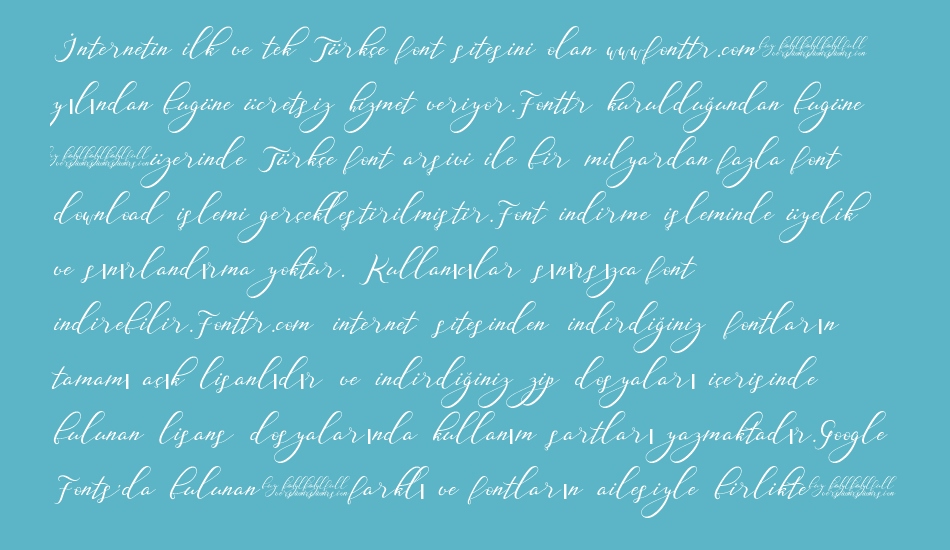 İnternetin ilk ve tek Türkçe font sitesini olan www.fonttr.com
yılından bugüne ücretsiz hizmet veriyor.Fonttr kurulduğundan bugüne
üzerinde Türkçe font arşivi ile bir milyardan fazla font
download işlemi gerçekleştirilmiştir.Font indirme işleminde üyelik
ve sınırlandırma yoktur. Kullanıcılar sınırsızca font
indirebilir.Fonttr.com internet sitesinden indirdiğiniz fontların
tamamı açık lisanlıdır ve indirdiğiniz zip dosyaları içerisinde
bulunan lisans dosyalarında kullanım şartları yazmaktadır.Google
Fonts'da bulunan farklı ve fontların ailesiyle birlikte